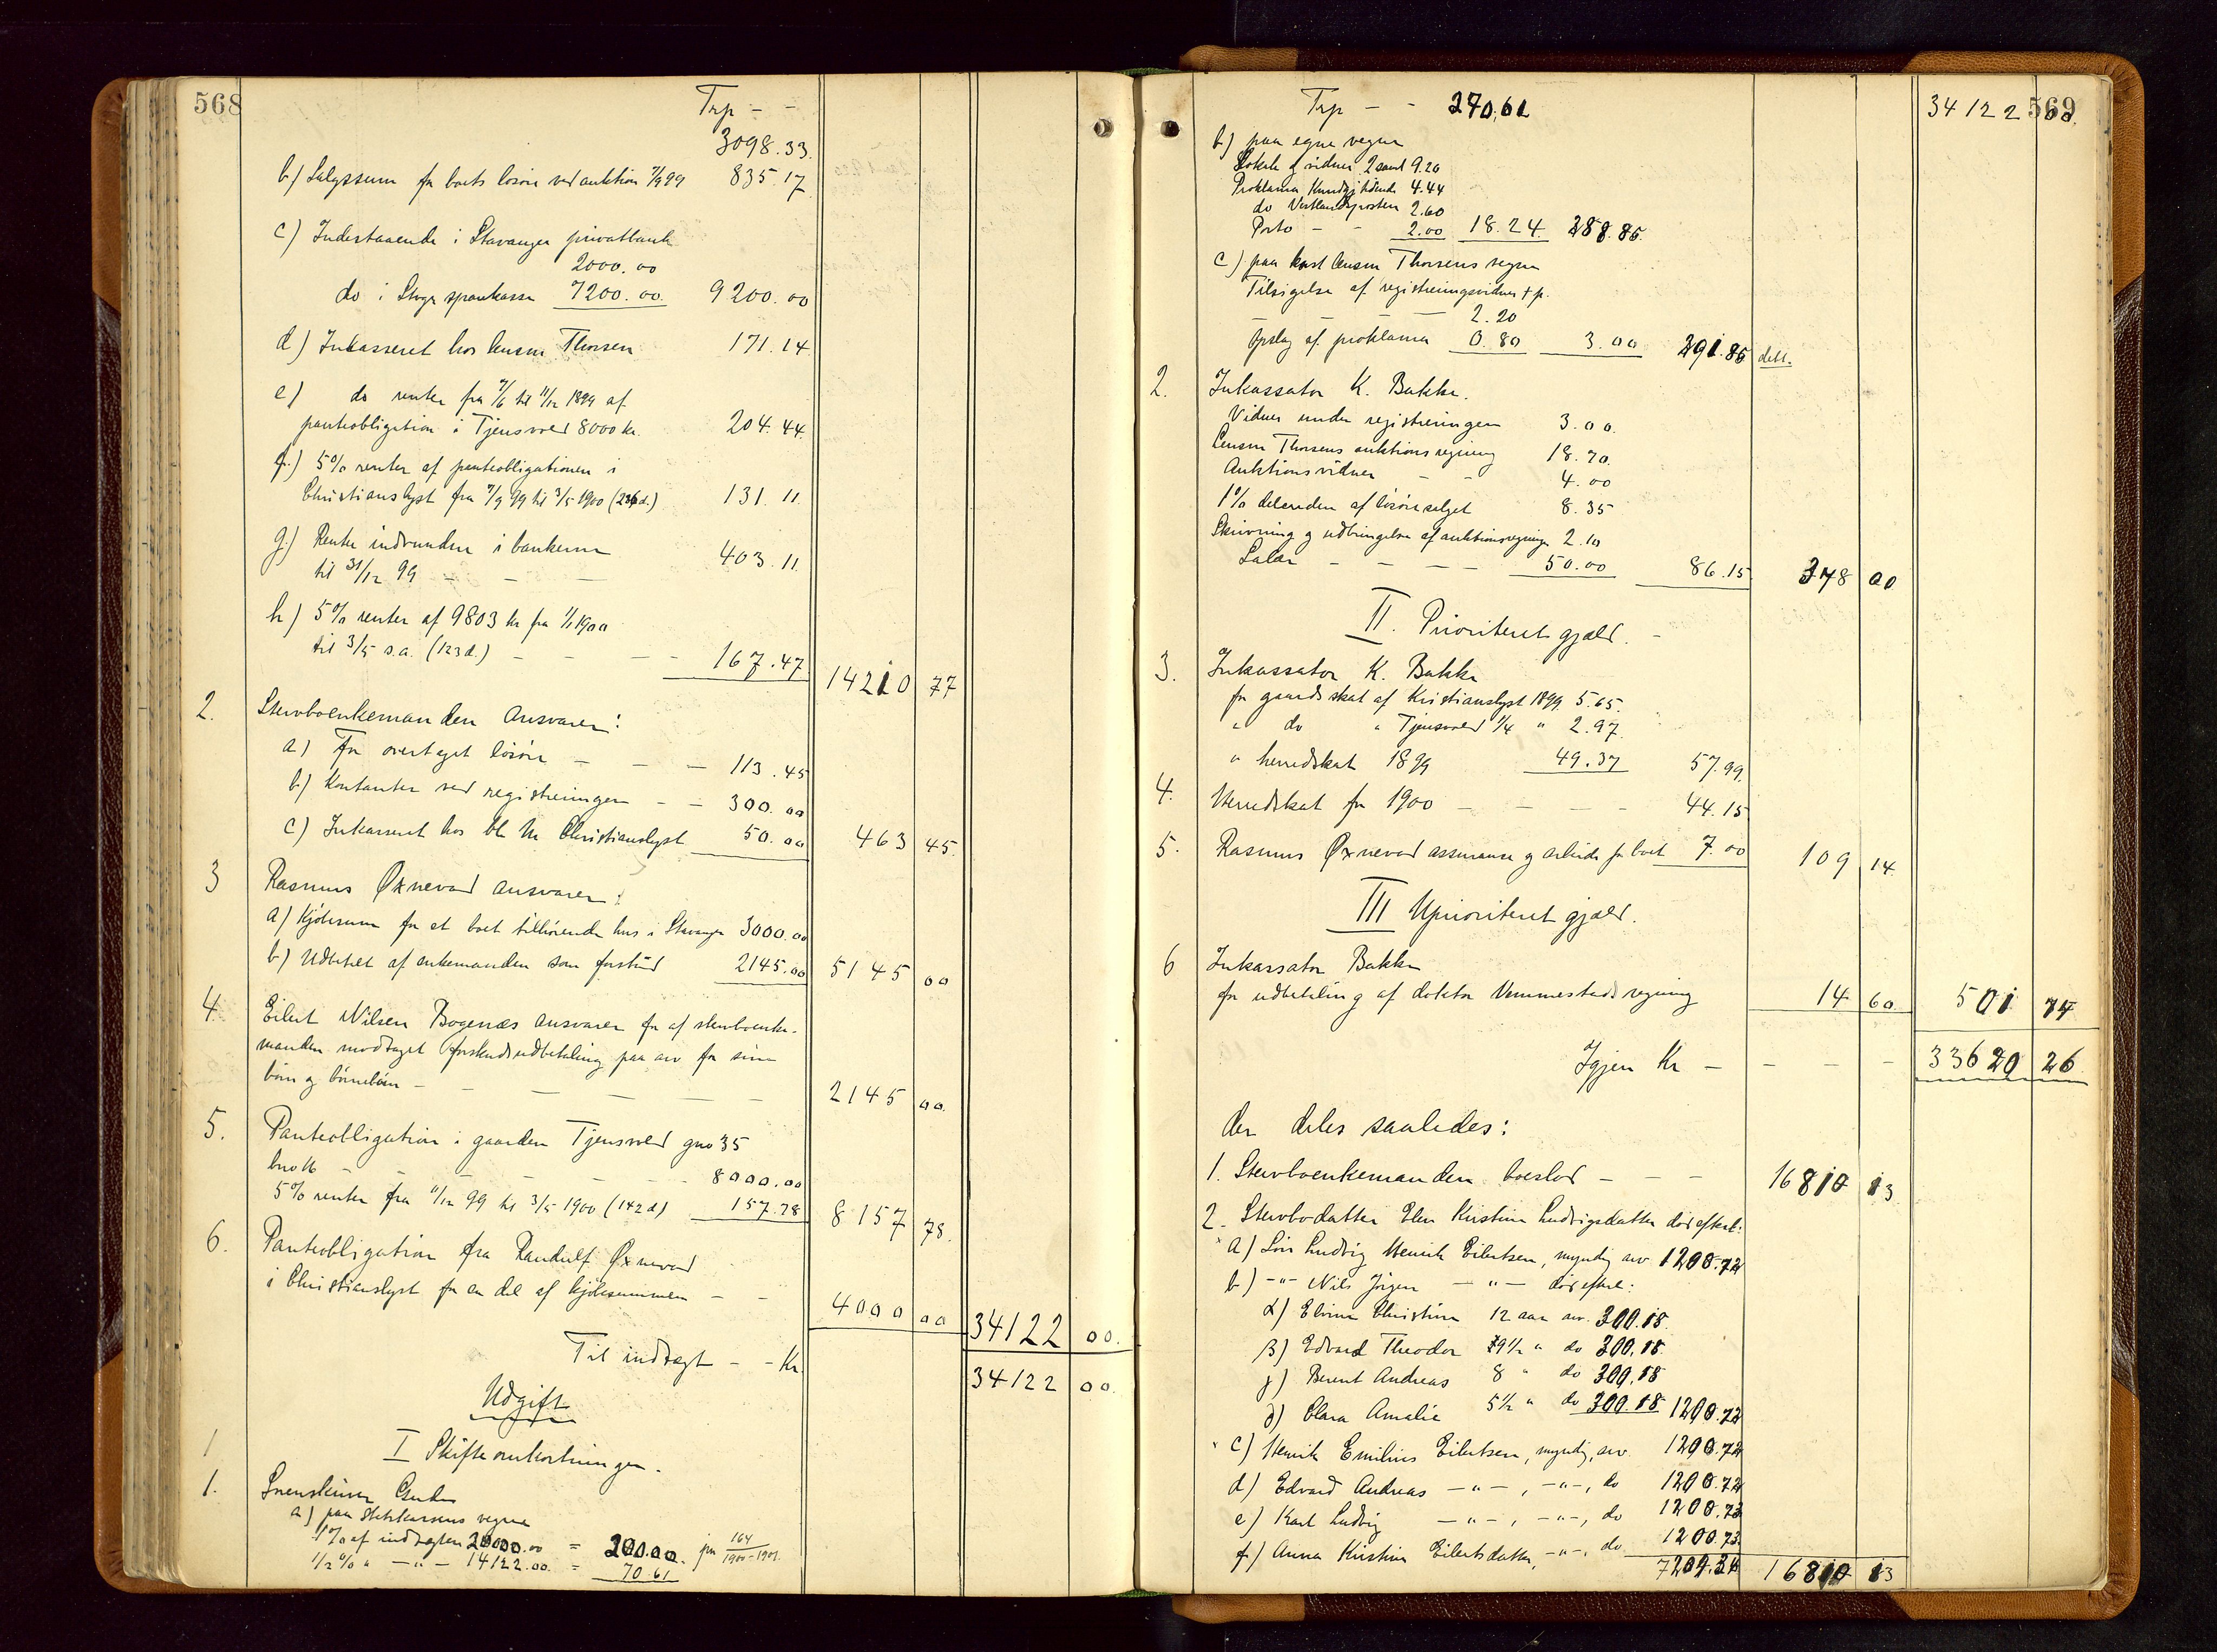 568
Trp - -
3098.33.
b) Salgssum for boets løsøre ved auktion 7/9 99 835.17
c) Indestaaende i Stavanger privatbank
2000.00
do i Stvgr sparekasse 7200.00. 9200.00
d) Inkasseret hos lensm Thorsen 171.14
e) do renter fra 7/6 til 11/12 1899 af
panteobligation i Tjensvold 8000 kr. 204.44
f.) 5% renter af panteobligationen i
Christianslyst fra 7/9 99 til 3/5 1900 (236 d.) 131.11
g.) Renter indvundne i bankerne
til 31/12 99 - - - 403.11
h) 5% renter af 9803 kr fra 1/1 1900
til 3/5 s.a. (123 d.) - - - - 167.47 14210 77
2. Stervboenkemanden ansvarer:
a) For overtaget løsøre - - - 113.45
b) Kontanter ved registreringen - - 300.00
c) Inkasseret hos Christianslyst 50.00 463 45.
3 Rasmus Øxnevad ansvarer:
a) Kjøbesum for et boet tilhørende hus i Stavanger 3000.00
b) Udbetalt af enkemanden som forskud 2145.00 5145 00
4. Eilert Nilsen Bogenæs ansvarer for af stervboenke-
manden modtaget forskudsudbetaling paa arv for sine
børn og børnebørn - - - - - 2145 00.
5. Panteobligation i gaarden Tjensvold gno 35
bno 16 - - - - - - 8000.00
5% renter fra 11/12 99 til 3/5 1900 (142 d) 157.78 8157 78.
6. Panteobligation fra Randulf Øxnevad
i Christianslyst for en del af kjøbesummen - - 4000 00 34122 00.
Til indtægt - - Kr. 34122 00.
Udgift
1 I Skifteomkostninger.
1. Sorenskriver
a) paa Statskassens vegne
1% af indtægten 20000.00 = 200.00. jnr 164/1900-1901
1/2 % " -"- 14122.00. = 70.61
569
Trp - - 270.61 34122 00.
b) paa egne vegne
Lokale og vidner 2 saml 9.20
Proklama Kundgj tidende 4.44
do Vestlandsposten 2.60
Porto - - 2.00 18.24. 288.85.
c) paa konst lensm Thorsens vegne
Tilsigelse af registreringsvidner + p.
- - - 2.20
Opslag af proklama 0.80 3.00 291.85 dett.
2. Inkassator K. Bakke.
Vidner under registreringen 3.00.
Lensm Thorsens auktionsregning 18.70.
Auktionsvidner - - 4.00
1% delcredere af løsøresalget 8.35
Skrivning og udbringelse af auktionsregninger 2.10
Salær - - - - 50.00 86.15 378 00
II. Prioriteret gjæld.
3. Inkassator K. Bakke
for gaardsskat af Kristianslyst 1899 5.65.
" do " Tjensvold 1/4 " 2.97.
" herredskat 1899 49.37 57.99.
4. Herredskat for 1900 - - - - 44.15
5. Rasmus Øxnevad assurance og arbeide for boet 7.00 109 14.
III Uprioriteret gjæld.
6 Inkassator Bakke
for udbetaling af doktor Vemmestads regning 14 60 501 74
Igjen Kr - - - - 33620 26
der deles saaledes:
1. Stervboenkemanden boeslod - - - 16810 13
2. Stervbodatter Elen Kristine Ludvigsdatter død efterl:
a) Søn Ludvig Henrik Eilertsen, myndig arv 1200.72
b) -"- Nils Jørgen -"- død efterl:
α) Elvine Christine 12 aar arv. 300.18.
β) Edvard Theodor 9 1/2 " do 300.18
γ) Berent Andreas 8 " do 300.18
δ) Clara Amalie 5 1/2 " do 300.18 1200.72
c) Henrik Emilius Eilertsen, myndig, arv. 1200.72
d) Edvard Andreas -"-, -"-, do 1200.72
e) Karl Ludvig -"-, -"-, do 1200.73
f) Anna Kristine Eilertsdatter, -"-, do 1200.73.
7204.34 16810 13